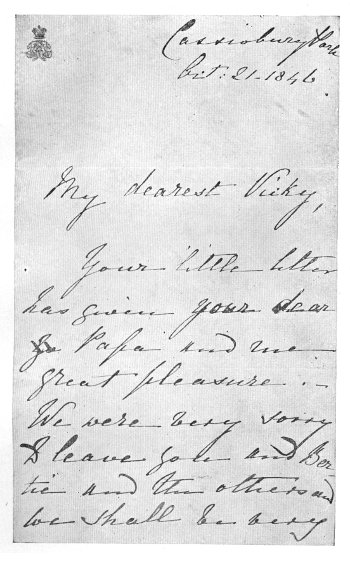 Cassiobury Park
Oct: 21- 1846.
My dearest Vicky,
Your little letter
has given your dear
Papa and me
great pleasure. –
We were very sorry
to leave you and Ber
tie and the others and
we shall be very